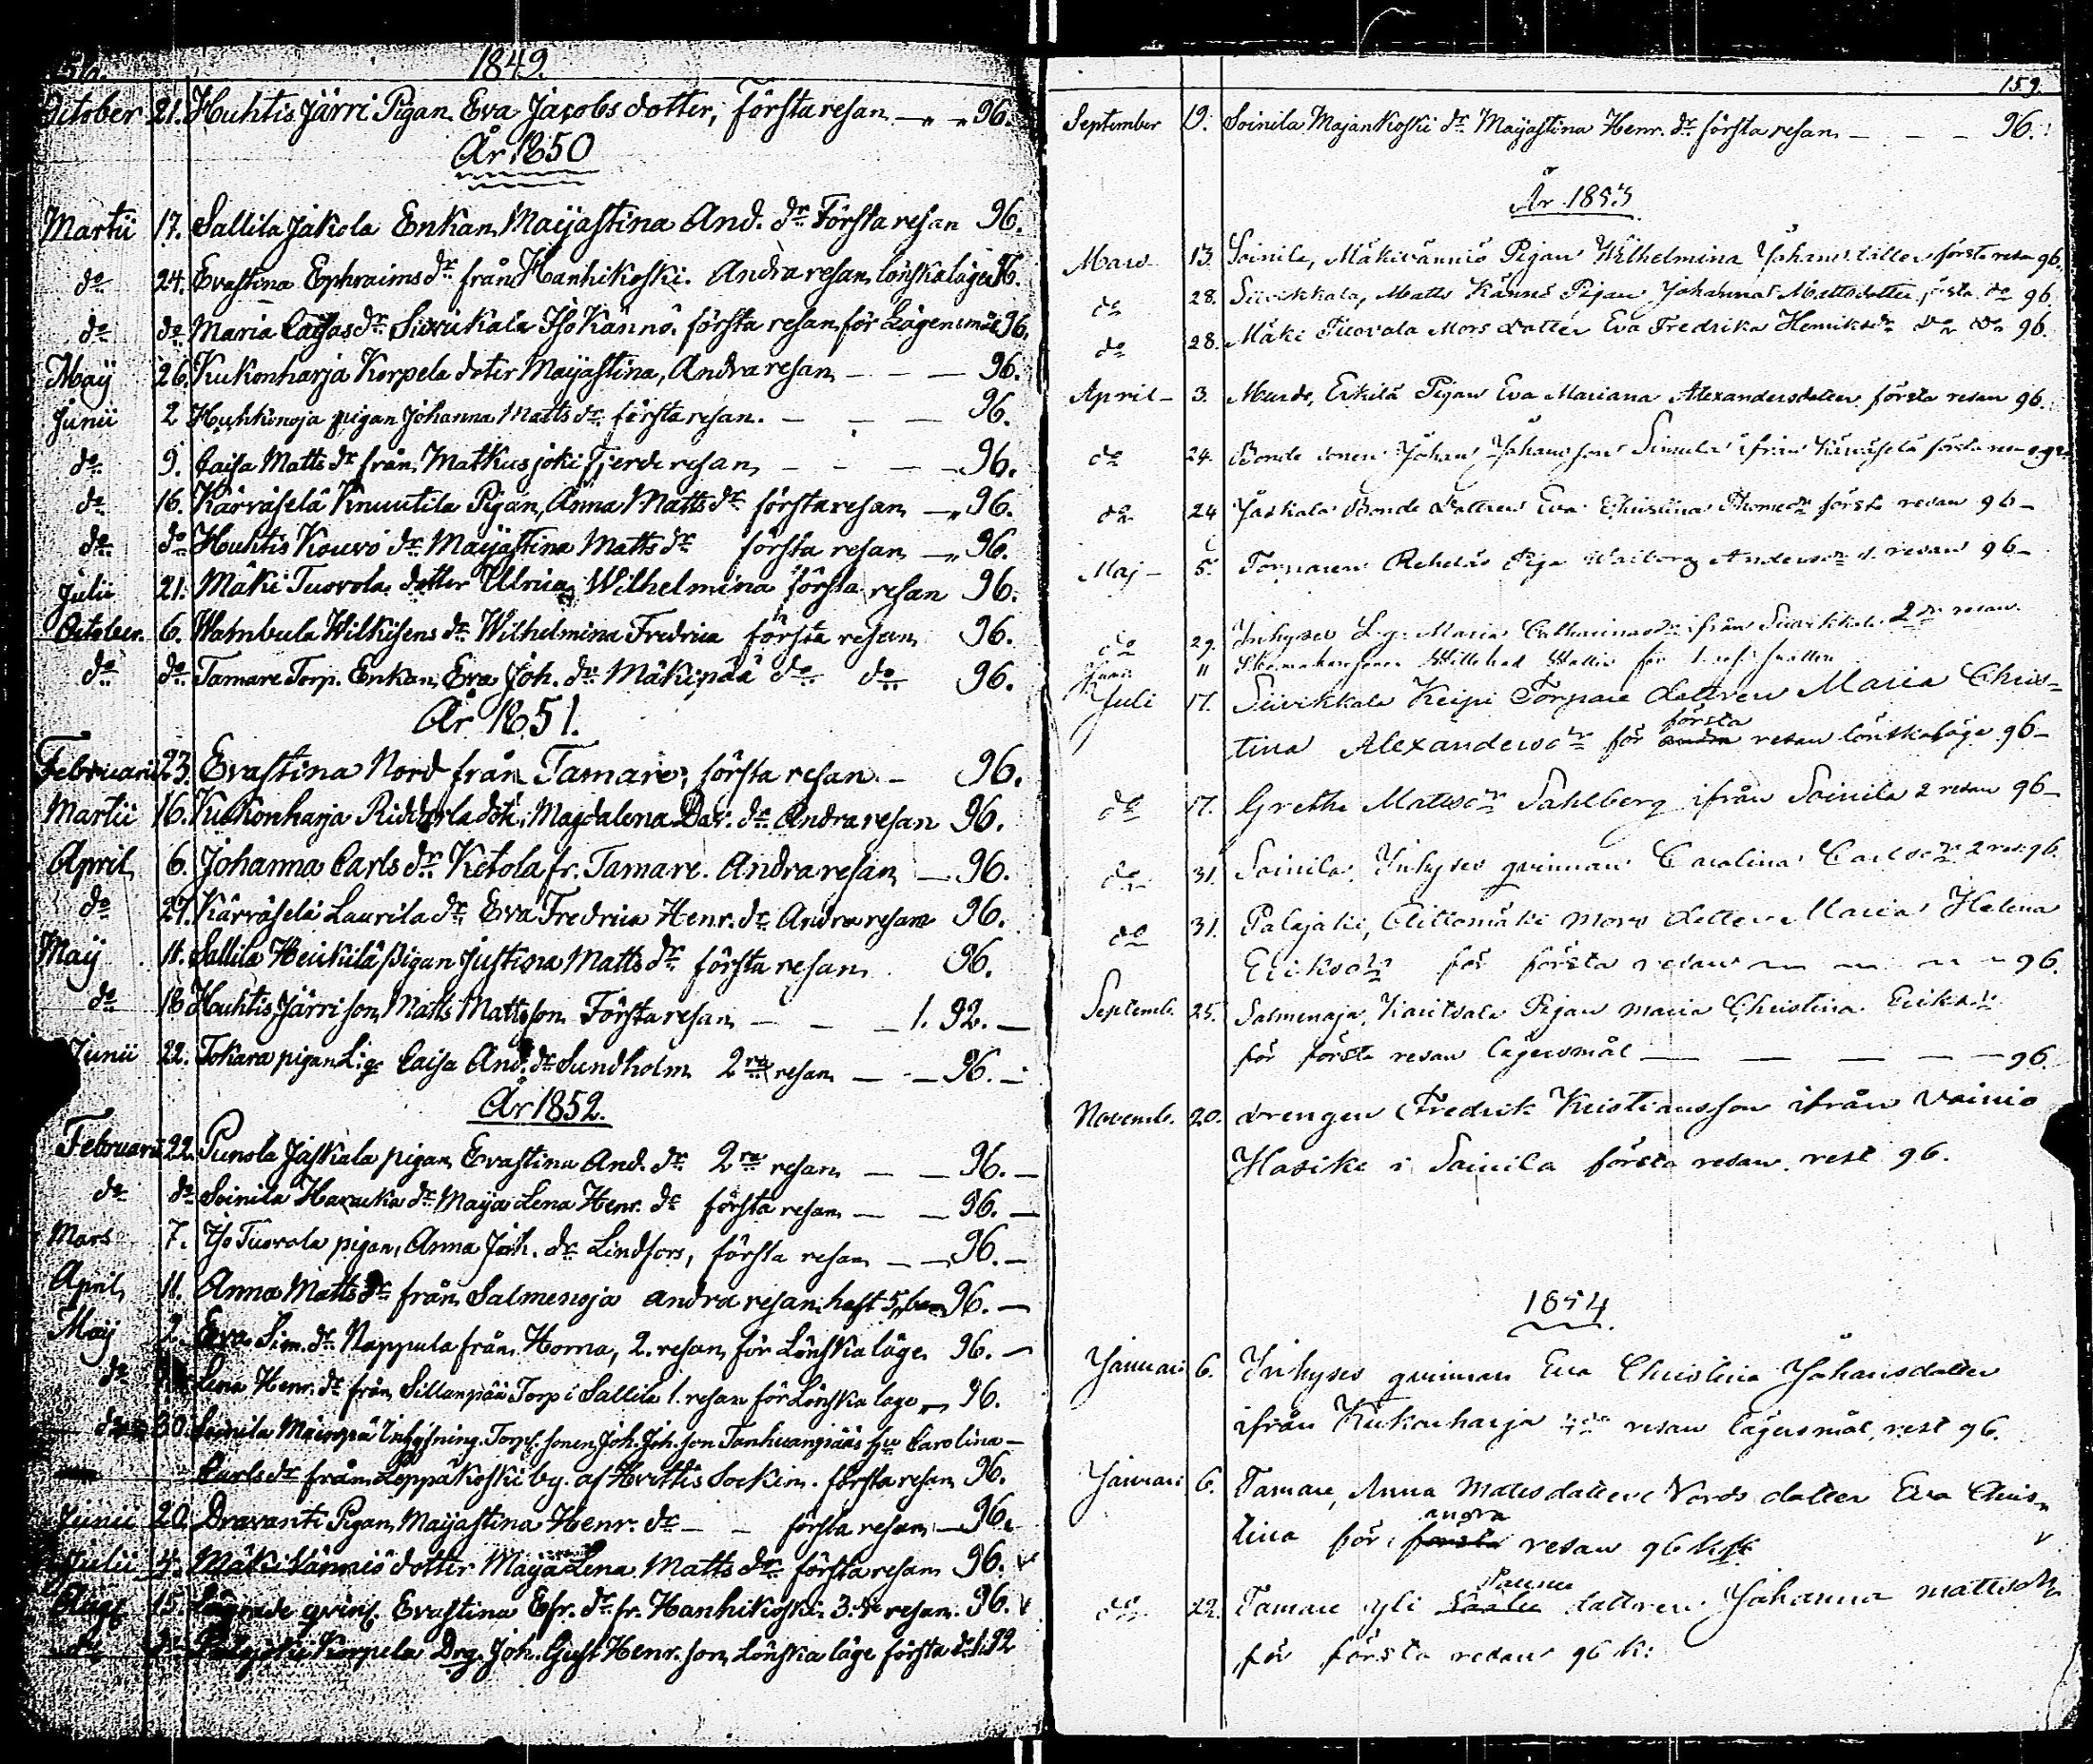 1849.
October 21. Huhtis Järri Pigan Eva Jacobsdotter, Första resan — „ „ 96.
År 1850
Martii 17. Sallila Jakola Enkan Maijastina And. dr Första resan 96.
do 24. Evastina Ephraims dr från Hanhikoski. Andra resan lönskaläge 96.
do do Maria Cajsas dr Suurikala Iso Kännö. första resan för Lägersmål 96.
Maij 26. Kukonharja Korpela doter Maijastina, Andra resan — — — 96.
Junii 2 Huhkionoja pigan Johanna Matts dr första resan. — — — 96.
do 9. Caisa Matts dr från Matkusjoki Fjerde resan, — — — 96.
do 16. Kärväselä Knuutila Pigan, Anna Matts dr första resan — „ 96.
do do Huhtis Kouvo dr Maijastina Matts dr första resan — „ 96.
Julii 21. Mäki Tuovola dotter Ulrica Wilhelmina första resan 96.
October. 6. Wambula Wilkisens dr Wilhelmina Fredrica första resan 96.
do do Tamare Torp. Enkan, Eva Joh. dr Mäkipää do do 96.
År 1851.
Februarii 23. Evastina Nord från Tamare, första resan. — 96.
Martii 16. Kukonharja Riddarla dott. Magdalena Dav. dr Andra resan 96.
April 6. Johanna Carls dr Ketola fr. Tamare. Andra resan — 96.
do 27. Kärväselä Laurila dr Eva Fredrica Henr. dr Andra resan 96.
Maij 11. Sallila Heickilä pigan Justina Matts dr första resan 96.
do 18 Huhtis Järri son, Matts Mattsson Första resan — — — 1. 92. —
Junii 22. Tokara pigan L:ge Caisa And. dr Sundholm 2ra resan — — 96. —
År 1852.
Februarii 22. Punola Jaskala pigan Evastina And. dr 2ra resan — — 96. —
do do Soinila Haraucka dr Maija Lena Henr. dr första resan — — 96. —
Mars 7. Iso Tuovola pigan, Anna Joh. dr Lindfors, första resan — — 96. —
April 11. Anna Matts dr från Salmenoja andra resan haft 5 96. —
Maij 2. Eva Sim. dr Nappula från Horna, 2. resan för Lönska läge 96. —
do Lena Henr. dr från Sillanpää Torp i Sallila 1. resan för Lönska läge 96.
30. Soinila Joh. Joh. son Tanhuanpääs Carolina —
Carls dr från Leppäkoski by. af Hvittis Sockin. första resan 96.
Junii 20. Dravanti Pigan Maijastina Henr. dr — — första resan — 96.
Julii 4. Mäki Vänniö dotter Maija Lena Matts dr första resan 96.
Aug. 15. Lägrade qvins. Evastina Efr. dr fr. Hanhikoski 3:de resan. 96.
do Korpela Drg. Joh. Gust Henr. son, Lönska läge första do 1.92
159.
September 19. Soinila Majankoski dr Maijastina Henr. dr första resan — — — 96.
År 1853
Mars 13. Soinila, Mäkivänniö Pigan Wilhelmina Johans dotter första resan 96.
do 28. Siivikkala, Matts Kännö Pigan Johanna Mattsdotter, första do 96.
do 28. Mäki Tuovola Mors dotter Eva Fredrika Henriksdr do do 96.
April — 3. Murdo, Erkilä Pigan Eva Mariana Alexandersdotter första resan 96.
do 24. Bonde sonen Johan Johansson Simula ifrån Käräselä första
do 24 Jaskala Bonde dottren Eva Christina Thomasdr första resan 96 —
Maj — 5. Torparen Piga Walborg Andersdr resan 96 —
do 29. Inhyses L.g. Maria Catharinadr ifrån Siivikkala 2dra resan
Junii 11 Willehad Wallin för
Juli 17. Siivikkala Keipi Torpare dottren Maria Chris-
tina Alexandersdr för andra första resan lönskaläge 96 —
do 17. Gretha Mattsdr Sahlberg ifrån Soinila 2 resan 96 —
do 31. Soinila Inhyses qvinnan Carolina Carlsdr 2 res. 96.
do 31. Palojoki, Mors dotter Maria Helena
Eriksdr för första resan — — — — 96.
Septemb. 25. Salmenoja, Pigan Maria Christina Eriksdr
för första resan lägersmål — — — — — 96.
Novemb. 20. drengen Fredrik Kristiansson ifrån Vainio
Hasike i Soinila första resan. rest 96.
1854
Januari 6. Inhyses qvinnan Eva Christina Johansdotter
ifrån Kukonharja 4de resan lägersmål, rest 96.
Januari 6. Tamare, Anna Mattsdotters Nords dotter Eva Chris-
tina för första andra resan 96 k
do 22. Tamare yli dottren Johanna Mattsdr
för första resan 96 k: